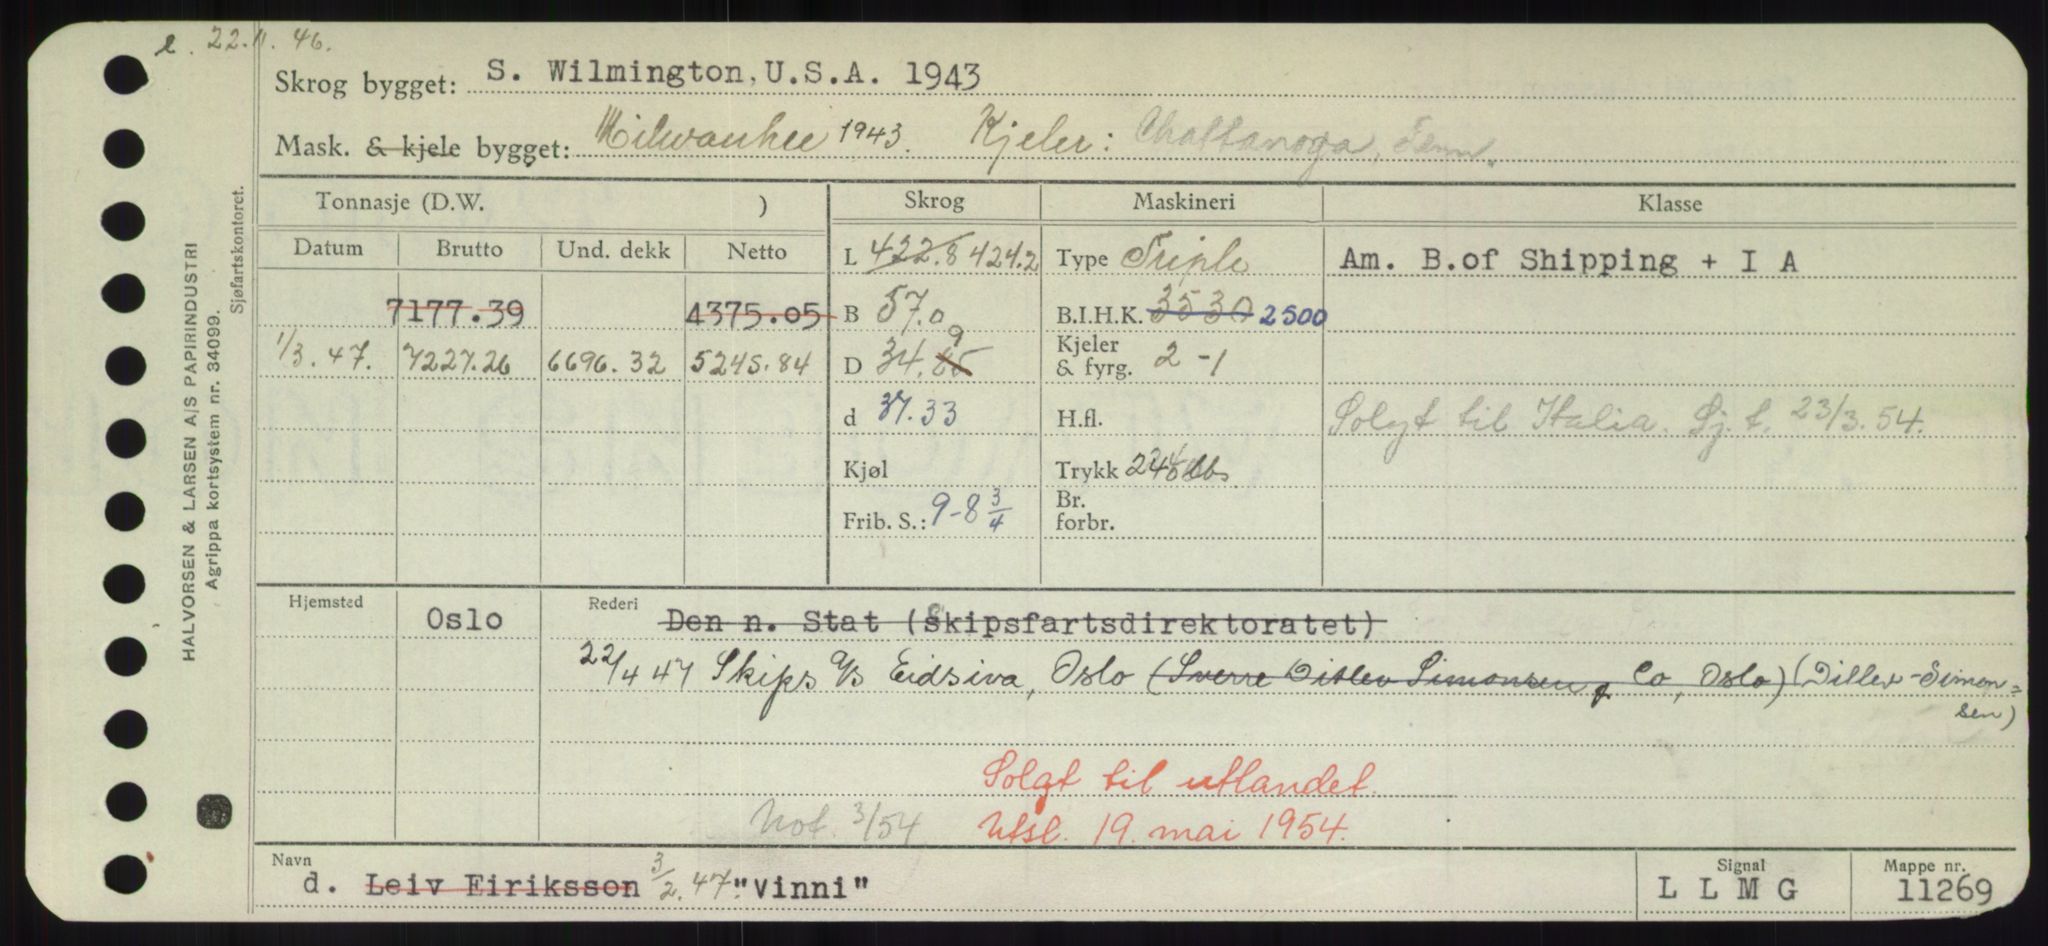 e. 22.11.46.
Skrog bygget: S. Wilmington, U.S.A. 1943
Mask. & kjele bygget: Milwaukee 1943. Kjeler: Chattanoga, Tenn.
Tonnasje (D.W. ) Skrog Maskineri Klasse
Datum Brutto Und. dekk Netto L 422.8 424.2 Type Triple Am. B.of Shipping + I A
7177.39 4375.05 B 57.0 B.I.H.K. 3530 2500
1/3.47. 7227.26 6696.32 5245.84 D 34.85 9 Kjeler & fyrg. 2-1
d 37.33 H.fl. Solgt til Italia. Sj.t. 23/3.54.
Kjøl Trykk lbs
Frib. S.: 9-8 3/4 Br. forbr.
Hjemsted Oslo Rederi Den n. Stat (Skipsfartsdirektoratet)
22/4 47 Skips a/s Eidsiva, Oslo (Sverre Ditlev Simonsen & Co, Oslo) (Ditlev-Simon=
sen)
Solgt til utlandet.
Not. 3/54 Utsl. 19. mai 1954.
Navn Signal Mappe nr.
d. Leiv Eiriksson 3/2.47. "Vinni" L L M G 11269
HALVORSEN & LARSEN A/S PAPIRINDUSTRI
Agrippa kortsystem nr. 34099.
Sjøfartskontoret.